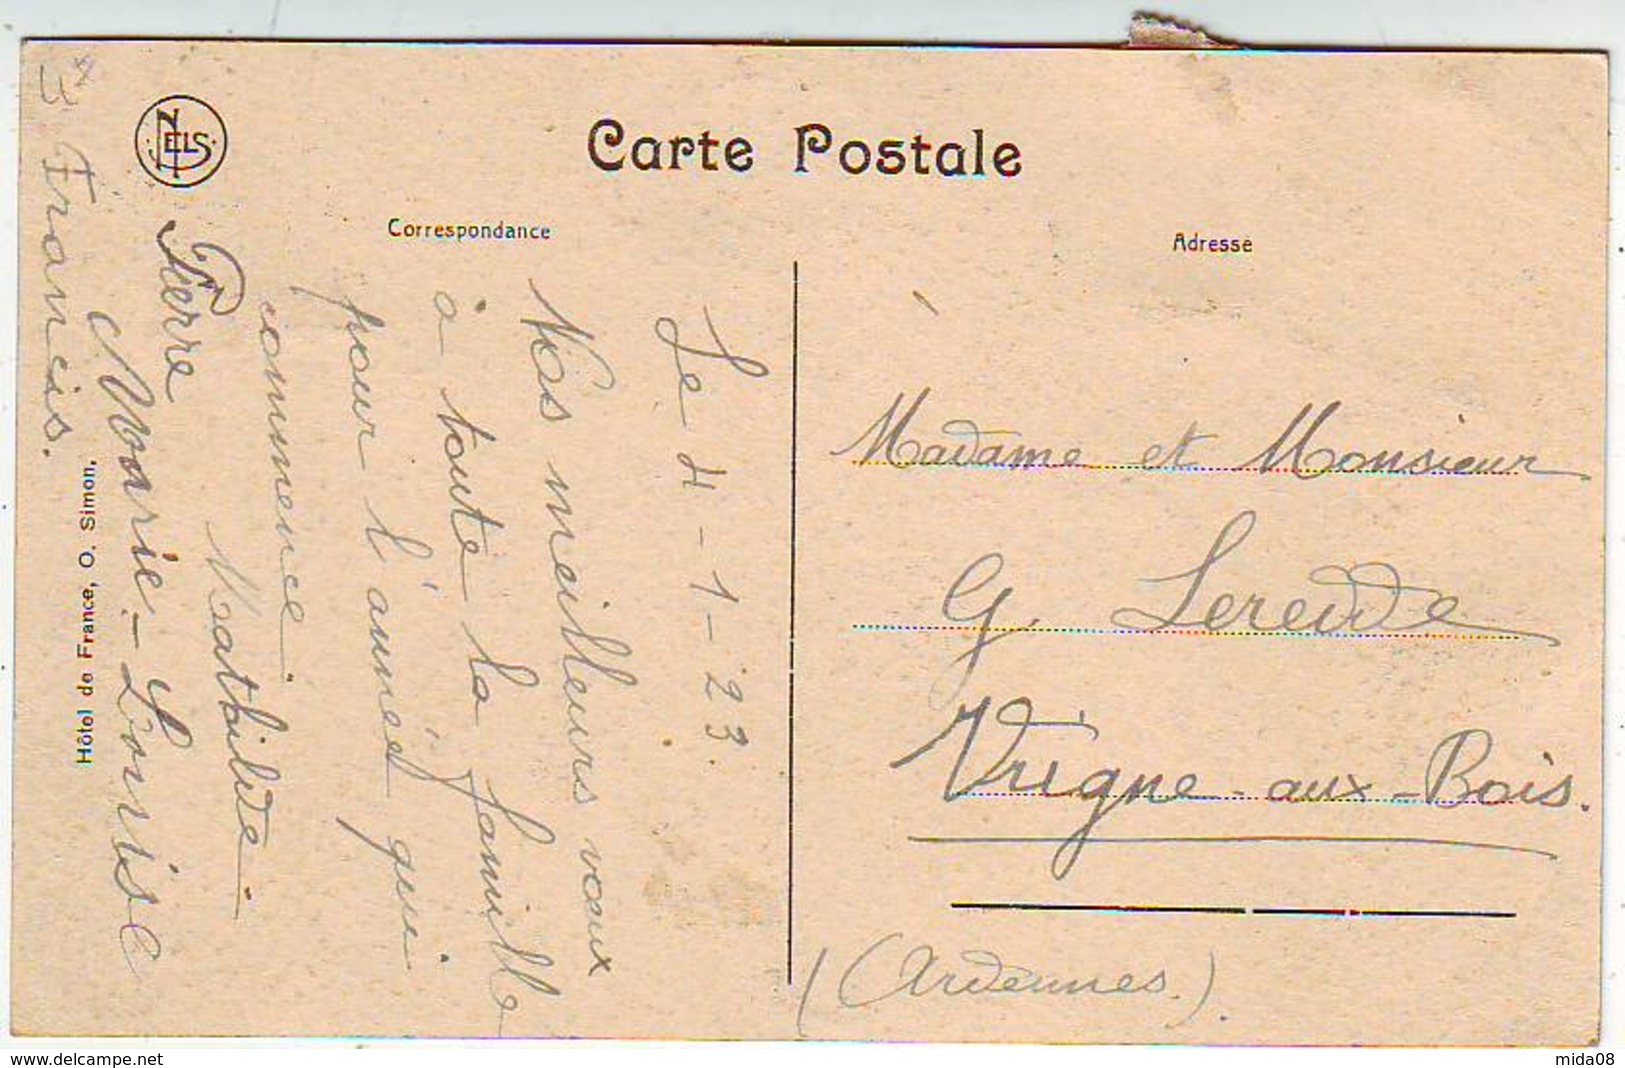 Carte Postale
NELS
Correspondance
Adresse
Le 4-1-23.
Nos meilleurs vœux
à toute la famille
pour l'année qui
commence.
Mathilde
Pierre
Marie-Louise
Francis.
Hôtel de France, O. Simon,
Madame et Monsieur
G.
Vrigne-aux-Bois.
(Ardennes.)
mida08